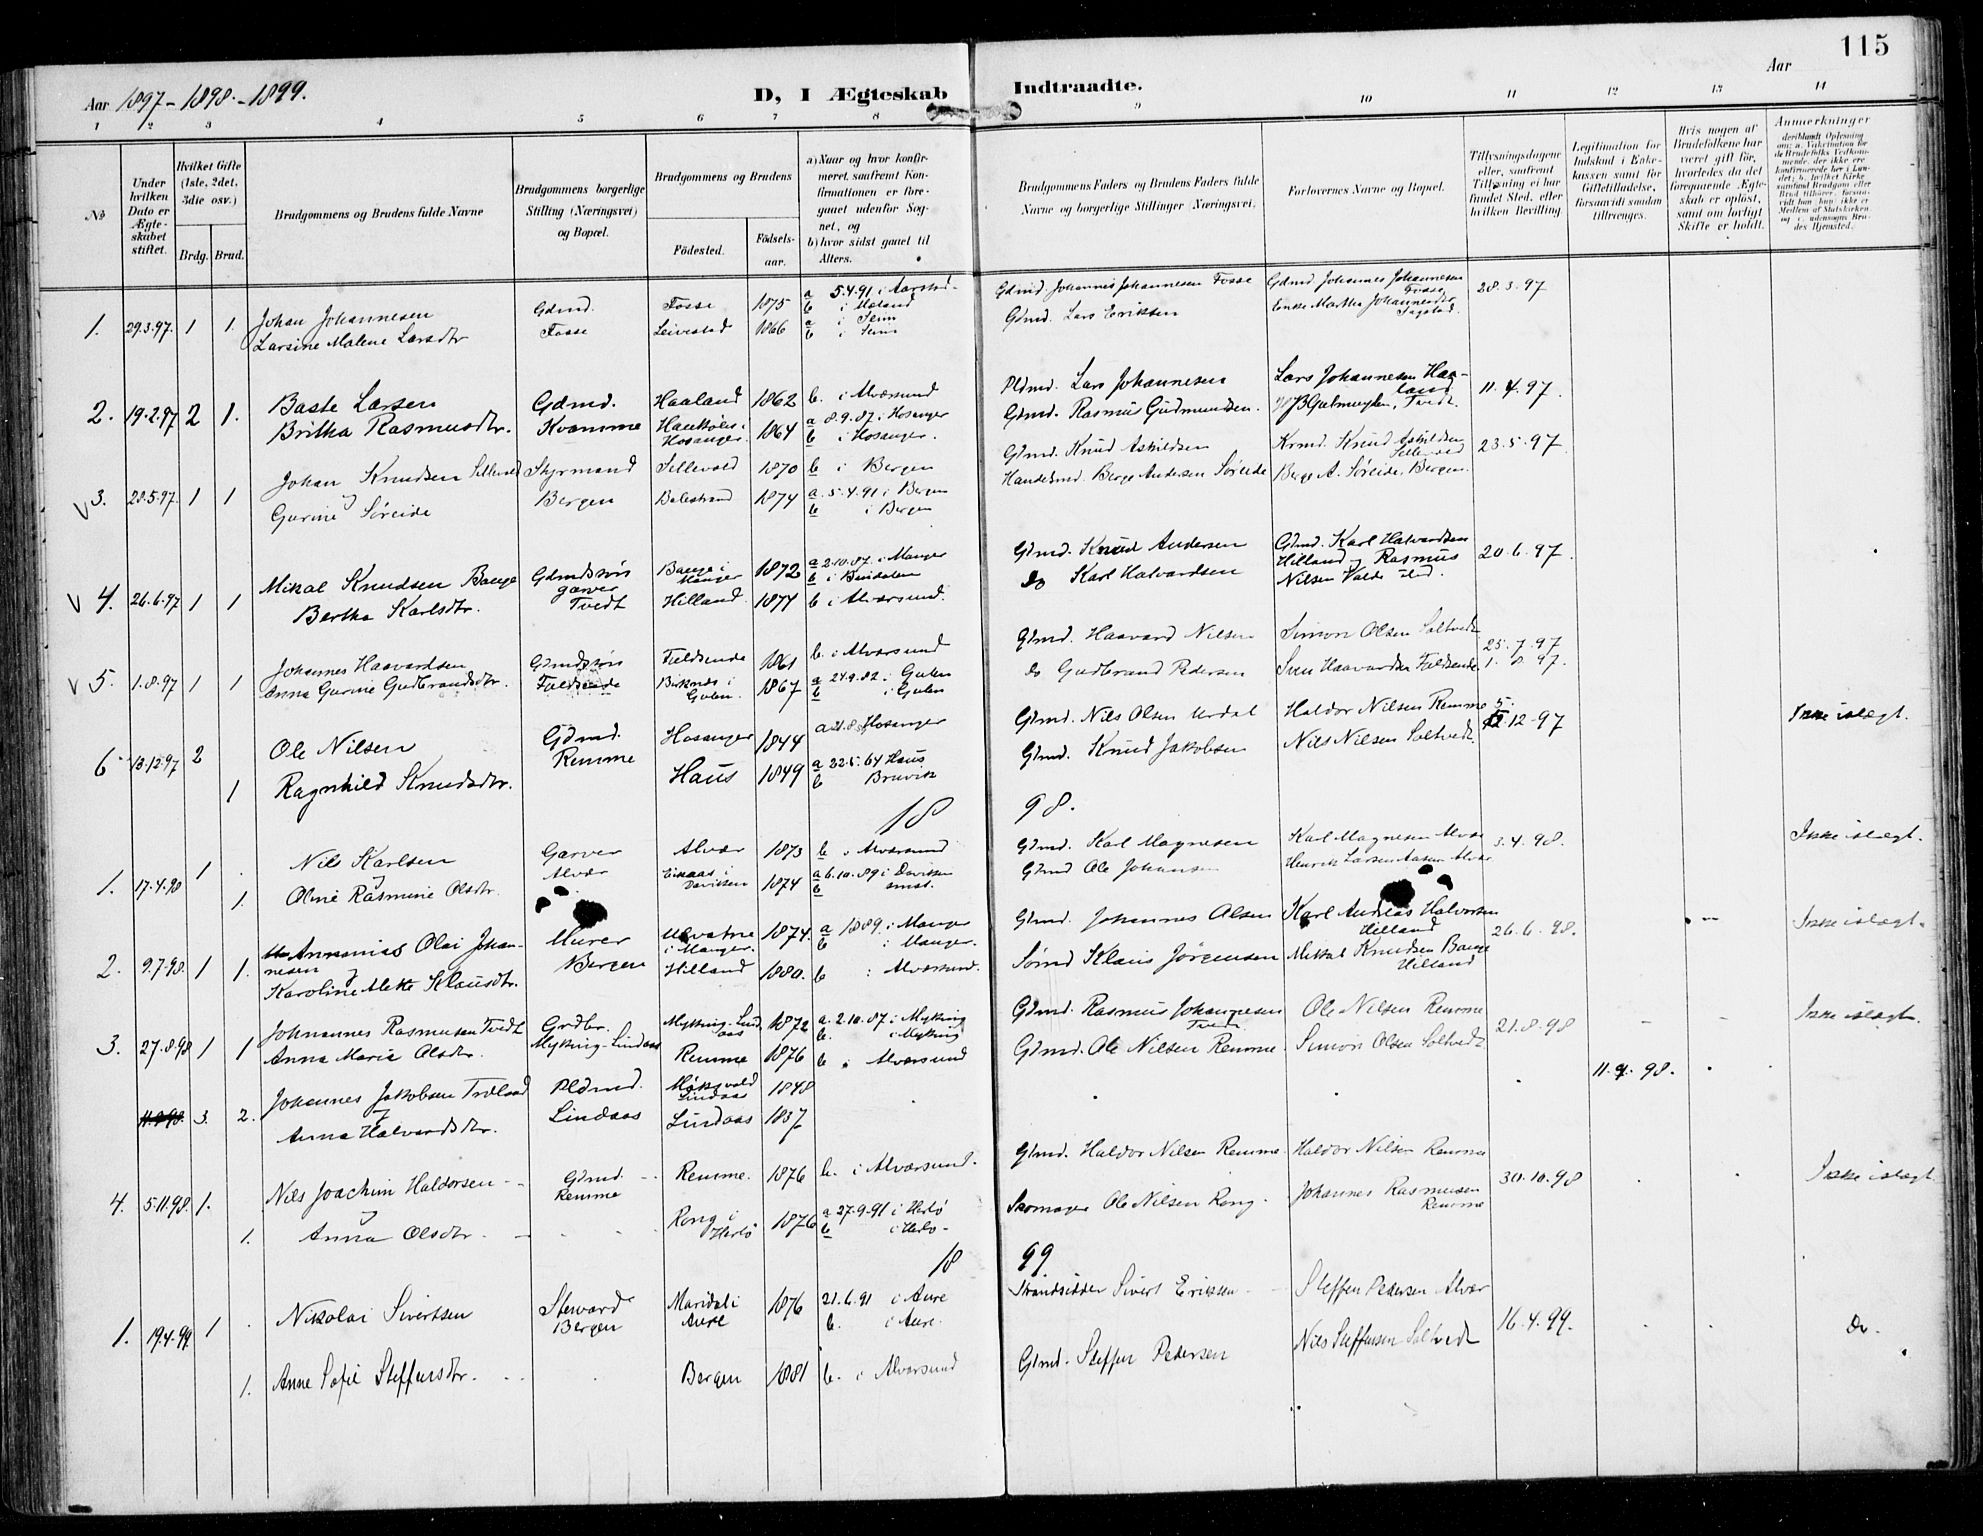 115
Aar 1897 - 1898. - 1899.
D, I Ægteskab Indtraadte.
Aar
1 2 3 4 5 6 7 8 9 10 11 12 13 14
No
Under hvilken Dato er Ægteskabet stiftet.
Hvilket Gifte (1ste, 2det, 3die osv.)
Brdg. Brud.
Brudgommens og Brudens fulde Navne
Brudgommens borgerlige Stilling (Næringsvei) og Bopæl.
Brudgommens og Brudens
Födested.
Födselsaar.
a) Naar og hvor konfirmeret, saafremt Konfirmationen er foregaaet udenfor Sognet, og
b) hvor sidst gaaet til Alters.
Brudgommens Faders og Brudens Faders fulde Navne og borgerlige Stillinger (Næringsvei).
Forlovernes Navne og Bopæl.
Tillysningsdagene eller, saafremt Tillysning ei har fundet Sted, efter hvilken Bevilling
Legitimation for Indskud i Enkekassen samt for Giftetilladelse, forsaavidt saadan tiltrænges.
Hvis nogen af Brudefolkene har været gift för, hvorledes da det foregaaende Ægteskab er oplöst, samt om lovligt Skifte er holdt.
Anmerkninger
1. 29.3.97. 1 1. Johan Johannesen Gdmd. Fosse 1875 a 5.4.91 i Aarstad b i Gdmd. Johannes Johannesen Fosse Gdmd Johannes Johannesen Fosse 28.3.97
Larsine Malene Larsdtr Fosse Leivestad 1866 a i Seim b i Seim Gdmd. Lars Eriksen Enke Martha Johannesdtr
2. 19.2.97 2 1. Baste Larsen Gdmd. Haaland 1862 b. i Alværsund Pldmd. Lars Johannesen Lars Johannesen Haaland 11.4.97.
Britha Rasmusdtr. Kvamme Hosanger 1864 a 8.9.87. i Hosanger b i Hosanger. Gdmd. Rasmus Gudmundsen. Tvedt.
V 3. 28.5.97. 1 1 Johan Knudsen Sellevold Styrmand Sellevold 1870 b i Bergen Gdmd. Knud Askildsen Krmd. Knud Askildsen Sellevold 23.5.97
Gurine Søreide Bergen Balestrand 1874 a. 5.4.91 i Bergen b i Bergen Handelsmd. Berge Andersen Søreide Berge A. Søreide, Bergen.
V 4. 26.6.97 1 1 Mikal Knudsen Bauge Gdmdssøn garver Bauge i Manger 1872 a 2.10.87. i Manger b i Gdmd. Knud Andersen Gdmd. Karl Halvardsen Hilland Rasmus 20.6.97.
Bertha Karlsdtr. Tvedt Hilland. 1874 b i Alværsund. do Karl Halvardsen Nilsen
V 5. 1.8.97 1 1 Johannes Haavardsen Gdmdssøn Fuldsende 1861 b. i Alværsund Gdmd. Haavard Nilsen Simon Olsen Soltvedt 25.7.97
Anna Gurine Gudbrandsdtr. Fuldsende Gulen. 1867 a 24.9.82. i Gulen b i Gulen do Gudbrand Pedersen Sven Haavardsen Fuldsende 1.8.97.
6 13.12.97 2 Ole Nilsen Gdmd. Hosanger 1844 a Hosanger Gdmd. Nils Olsen Urdal Haldor Nilsen Remme 5. 12.12.97 Ikke i slægt.
1 Ragnhild Knudsdtr. Remme Haus 1849 a 22.5.64 Haus b Bruvik Gdmd. Knud Jakobsen Nils Nilsen Soltvedt.
18 98.
1. 17.4.98 1. Nils Karlsen Garver Alvær 1873 b i Alværsund Gdmd. Karl Magnesen Karl Magnesen Alvær 3.4.98. Ikke i slægt.
1. Oline Rasmine Olsdtr. Alvær Daviken 1874 a 6.10.89 i Daviken b Gdmd Ole Johansen Henrik Larsen Alvær
2. 9.7.98. 1 1. Annanias Olai Johannesen Murer i Manger. 1874. a 1889. i Manger b i Manger. Gdmd. Johannes Olsen Karl Andreas Halvorsen Hilland 26.6.98. Ikke i slægt.
Karoline Mette Klausdtr. Bergen Hilland 1880. b i Alværsund. Sømd Klaus Jørgensen Mikkal Knudsen Bauge Hilland
3. 27.8.98 1 1 Johannes Rasmusen Tvedt Grdbr. Mykking-Lindaas 1872 a. 2.10.87 i Mykking b. i Mykking Gdmd. Rasmus Johannesen Tvedt Ole Nilsen Remme 21.8.98 Ikke i slægt.
Anna Marie Olsdtr. Mykking-Lindaas Remme 1876 b i Alværsund Gdmd. Ole Nilsen Remme Simon Olsen Soltvedt
11.9.98. 3. 2. Johannes Jakobsen Pldmd. Lindaas 1848 11.9.98.
Anna Halvardsdtr. Lindaas Lindaas 1837
4. 5.11.98. 1. Nils Joachim Haldorsen Gdmd. Remme Remme. 1876 b. i Alværsund. Gdmd. Haldor Nilsen Remme Haldor Nilsen Remme 30.10.98 Ikke i slægt.
1. Anna Olsdtr. Rong i Herlø 1876 a 27.9.91 i Herlø b i Herlø Skomager Ole Nilsen Rong. Johannes Rasmusen Remme
18 99
1. 19.4.99 1 Nikolai Sivertsen Steward Bergen Aure 1876 21.6.91 i Aure b. i Aure. Strandsidder Sivert Eriksen Steffen Pedersen Alvær 16.4.99. Do.
1. Anne Sofie Steffensdtr. Bergen 1881 b. i Alværsund Gdmd. Steffen Pedersen Nils Steffensen Soltvedt